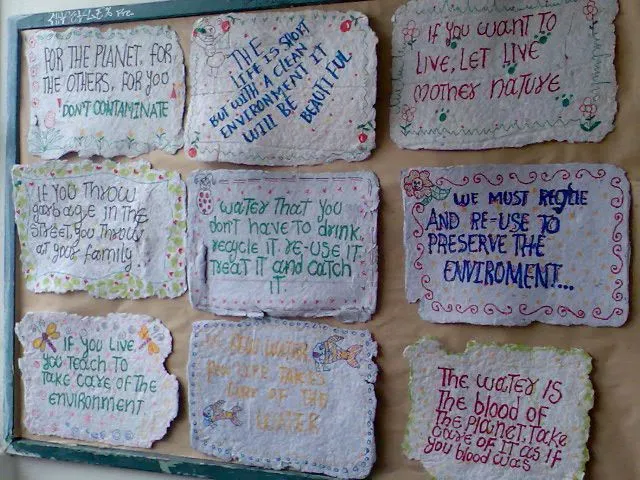 FOR THE PLANET, FOR
THE OTHERS, FOR YOU
DON'T CONTAMINATE
THE
LIFE IS SHORT
BUT WITH A CLEAN
ENVIRONMENT IT
WILL BE BEAUTIFUL
if YOU WANT TO
LIVE, LET LIVE
MOTHER NATURE
IF YOU THROW
garbage IN THE
STREET, YOU THROW
AT YOUR FAMILY
WATER THAT YOU
DON'T HAVE TO DRINK,
RECYCLE IT RE-USE IT
TREAT IT AND CATCH
IT
WE MUST
AND RE-USE TO
PRESERVE THE
ENVIROMENT...
IF YOU LIVE
YOU TEACH TO
TAKE CARE OF THE
ENVIRONMENT
WATER
LIFE TAKES
OF THE
WATER
THE WATER IS
THE blood OF
THE PLANET, TAKE
CARE OF IT AS IF
YOU blood WAS